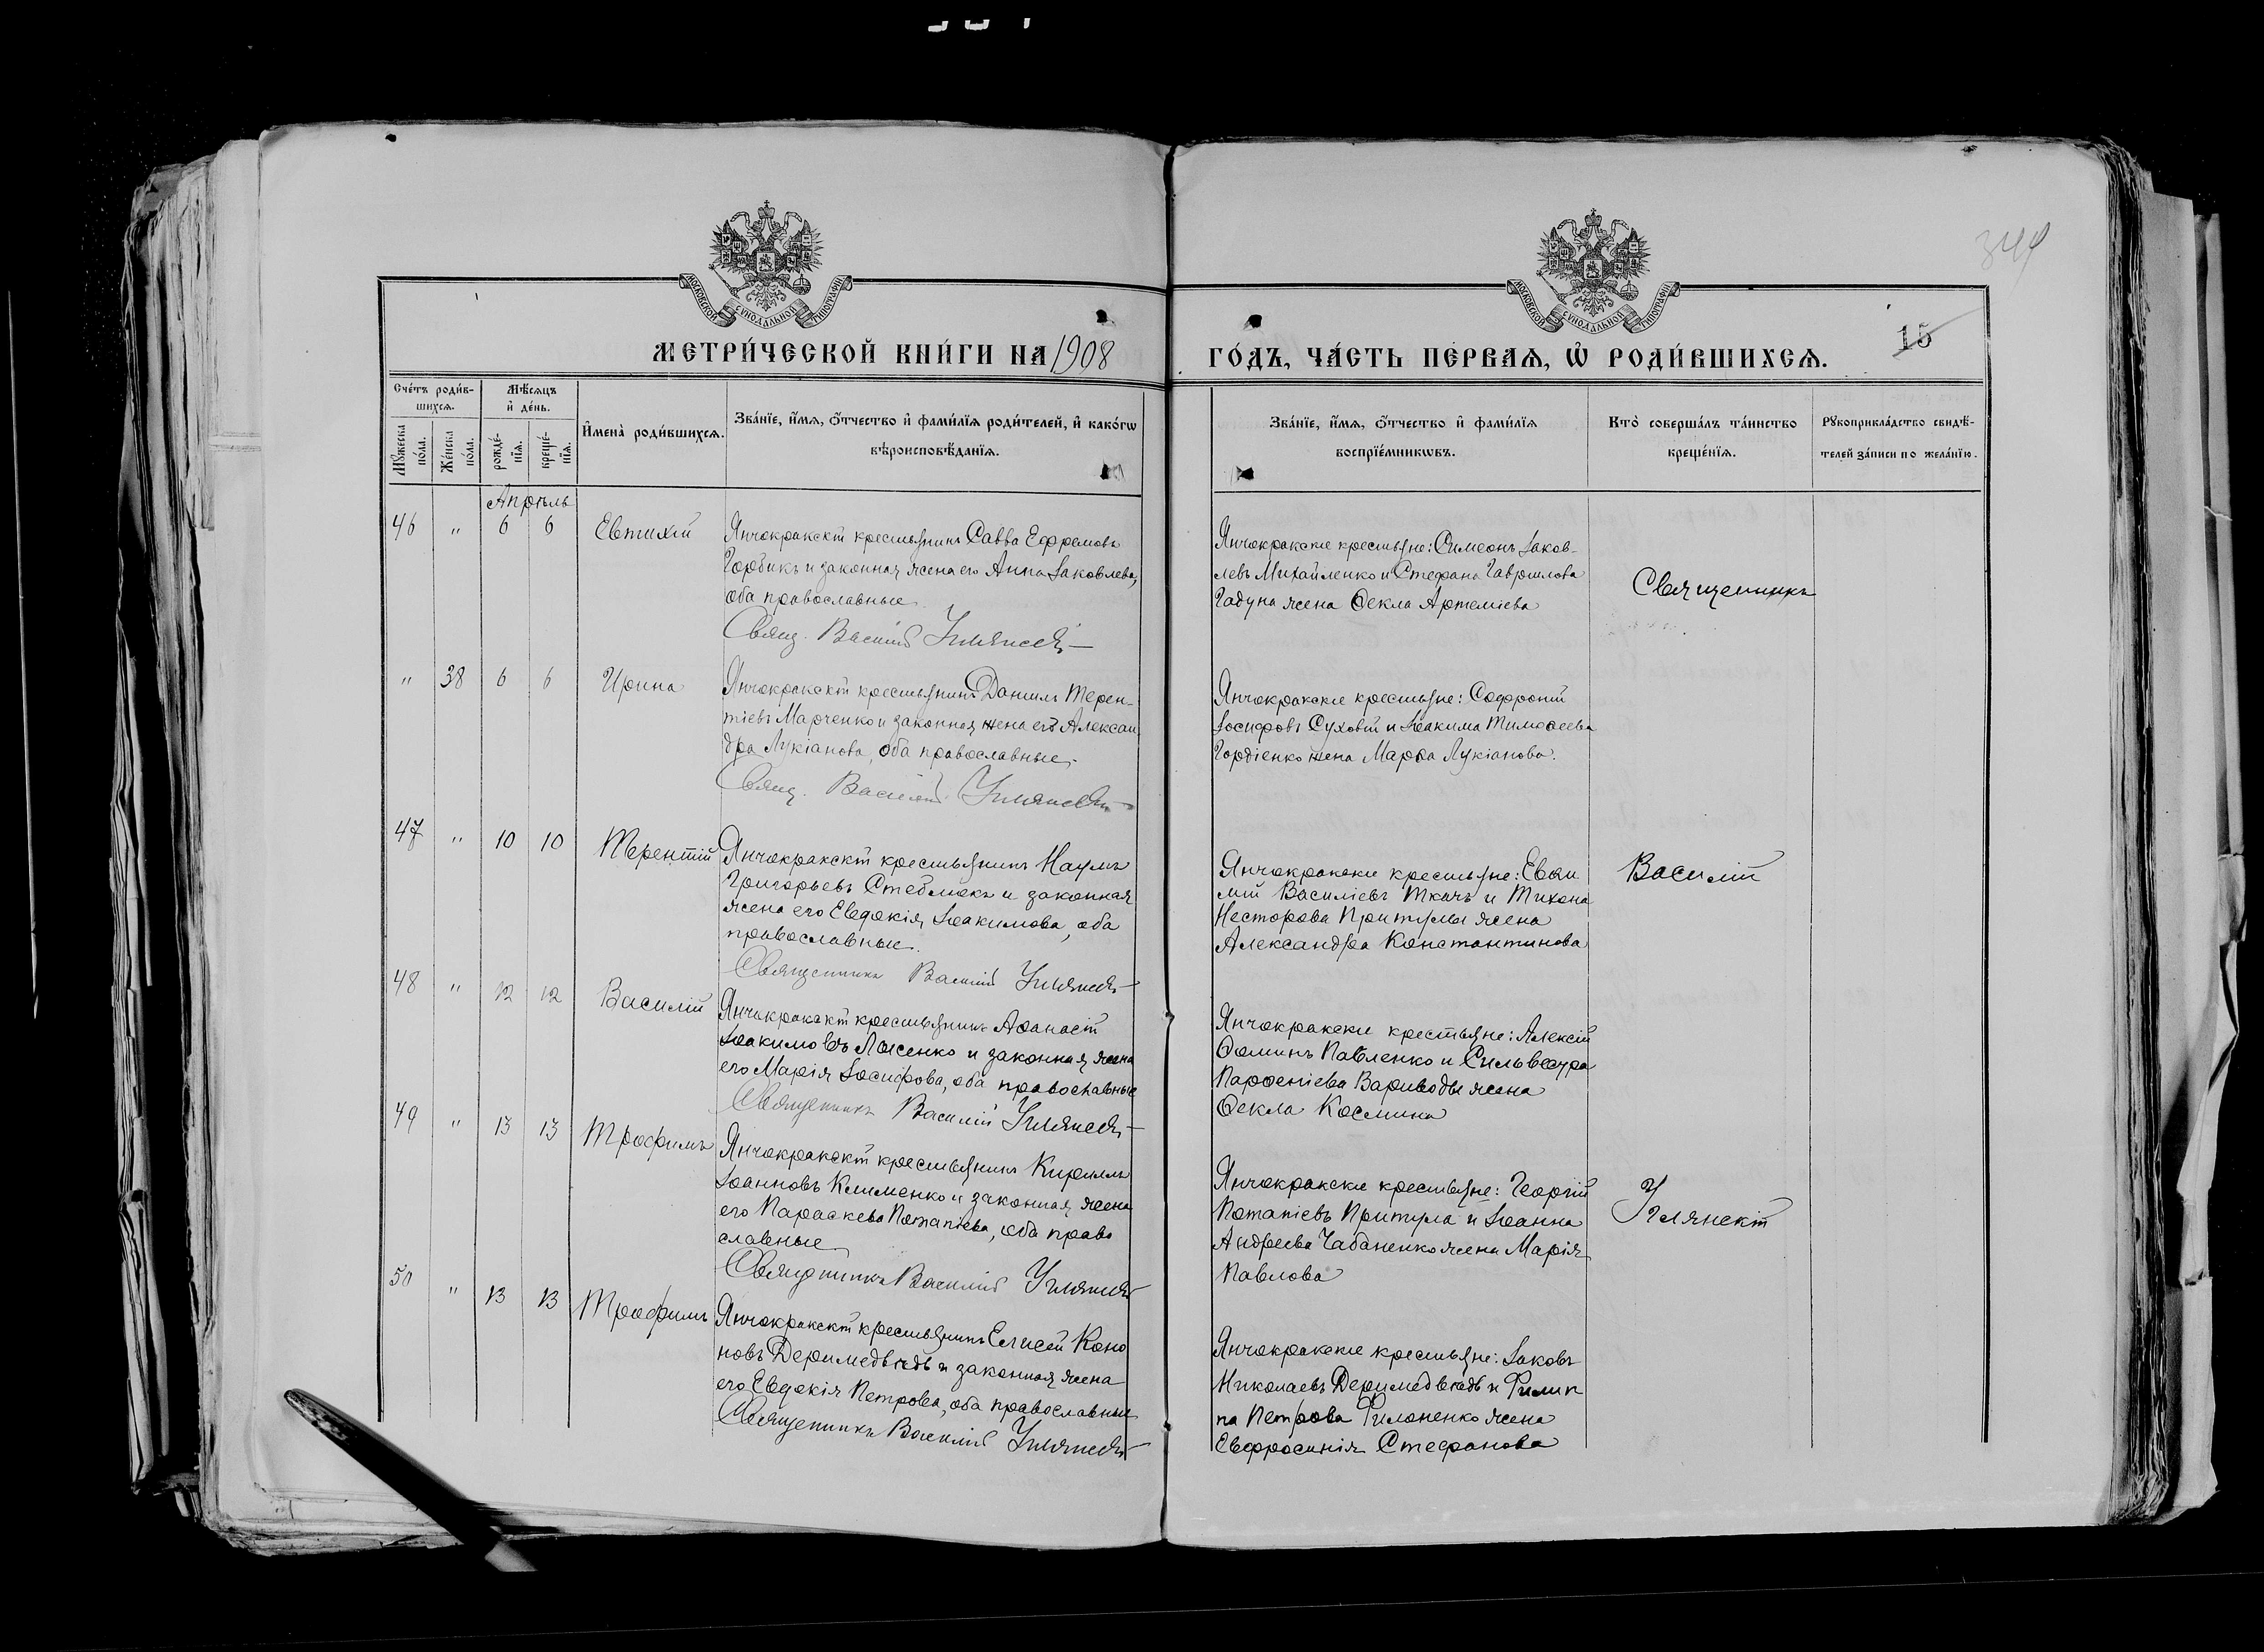 344
МОСКОВСКОЙ СУНОДАЛЬНОЙ ТИПОГРАФІИ
МОСКОВСКОЙ СУНОДАЛЬНОЙ ТИПОГРАФІИ
15
МЕТРИ́ЧЕСКОЙ КНИ́ГИ НА 1908
ГО́ДЪ, ЧА́СТЬ ПЕ́РВАѦ, Ѽ РОДИ́ВШИХСѦ.
Сче́тъ роди́в-
шихсѧ.
Мꙋ́жеска по́ла.
Же́нска по́ла.
Мѣ́сѧцъ
и҆ де́нь.
рожде́-
нїѧ.
креще́-
нїѧ.
И҆мена̀ роди́вшихсѧ.
Зва́нїе, и҆́мѧ, ѻ҆́тчество и҆ фами́лїѧ роди́телей, и҆ како́гѡ
вѣроисповѣ́данїѧ.
Зва́нїе, и҆́мѧ, ѻ҆́тчество и҆ фами́лїѧ
воспрїе́мникѡвъ.
Кто̀ соверша́лъ та́инство
креще́нїѧ.
Рꙋкоприкла́дство свидѣ́-
телей за́писи по жела́нїю.
Апрѣль
46 " 6 6 Евтихій
Янчокракскій крестьянинъ Савва Ефремовъ
Горбикъ и законная жена его Анна Іаковлева,
оба православные
Свящ. Василій Углянскій
Янчокракские крестьяне: Симеонъ Іаков-
левъ Михайленко и Стефана Гаврилова
Гадуна жена Ѳекла Артеміева
Священникъ
" 38 6 6 Ирина
Янчокракскій крестьянинъ Даниилъ Терен-
тіевъ Марченко и законная жена его Алексан
дра Лукіанова, оба православные.
Свящ. Василій Углянскій
Янчокракские крестьяне: Софроній
Іосифовъ Суховій и Іоакима Тимоѳеева
Гордіенко жена Марѳа Лукіанова.
47 " 10 10 Терентій
Янчокракскій крестьянинъ Наумъ
Григорьевъ Стеблюкъ и законная
жена его Евдокія Іоакимова, оба
православные.
Священникъ Василій Углянскій
Янчокракски крестьяне: Евѳи
мій Василіевъ Ткачъ и Тихона
Несторова Притулы жена
Александра Константинова
Василій
48 " 12 12 Василій
Янчокракскій крестьянинъ Аѳанасій
Іоакимовъ Лысенко и законная жена
его Марія Іосифова, оба православные
Священникъ Василій Углянскій
Янчокракски крестьяне: Алексій
Ѳоминъ Павленко и Сильвестра
Парѳеніева Вариводы жена
Ѳекла Космина
49 " 13 13 Трофимъ
Янчокракскій крестьянинъ Кириллъ
Іоанновъ Клименко и законная жена
его Параскева Потапіева, оба право
славные
Священникъ Василій Углянскій
Янчокракски крестьяне: Георгій
Потапіевъ Притула и Іоанна
Андреева Чабаненко жена Марія
Павлова
Углянскій
50 " 13 13 Трофимъ
Янчокракскій крестьянинъ Елисей Коно
новъ Деримедвѣдь и законная жена
его Евдокія Петрова, оба православные
Священникъ Василій Углянскій
Янчокракские крестьяне: Іаковъ
Николаевъ Деримедвѣдь и Филип
па Петрова Филоненко жена
Евфросинія Стефанова